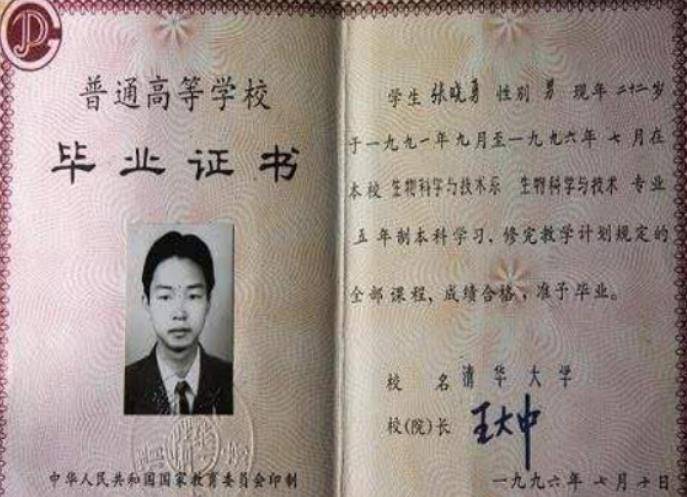 普通高等学校
毕业证书
中华人民共和国国家教育委员会印制
学生 张晓勇 性别 男 现年 二十二岁
于一九九一年九月至一九九六年 七月在
本校 生物科学与技术系 生物科学与技术 专业
五 年制本科学习，修完教学计划规定的
全部课程，成绩合格，准予毕业。
校 名 清华大学
校(院)长 王大中
一九九六年 七月 十日